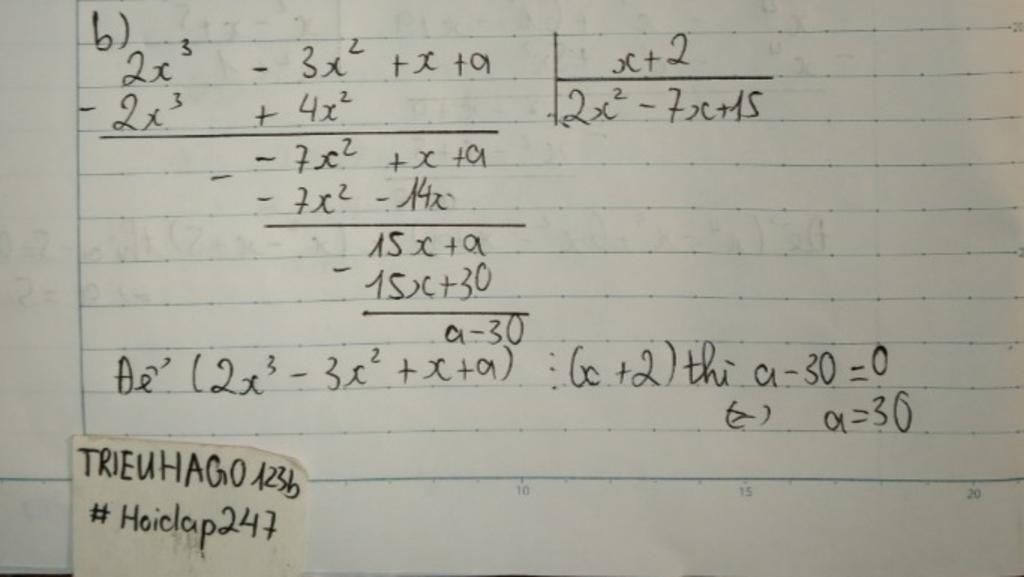 b)
2x³ - 3x² + x + a | x + 2
- 2x³ + 4x² | 2x² - 7x + 15
- 7x² + x + a
- - 7x² - 14x
15x + a
- 15x + 30
a - 30
Để (2x³ - 3x² + x + a) ⋮ (x + 2) thì a - 30 = 0
⇔ a = 30
TRIEUHAGO123b
# Hoidap247
10 15 20